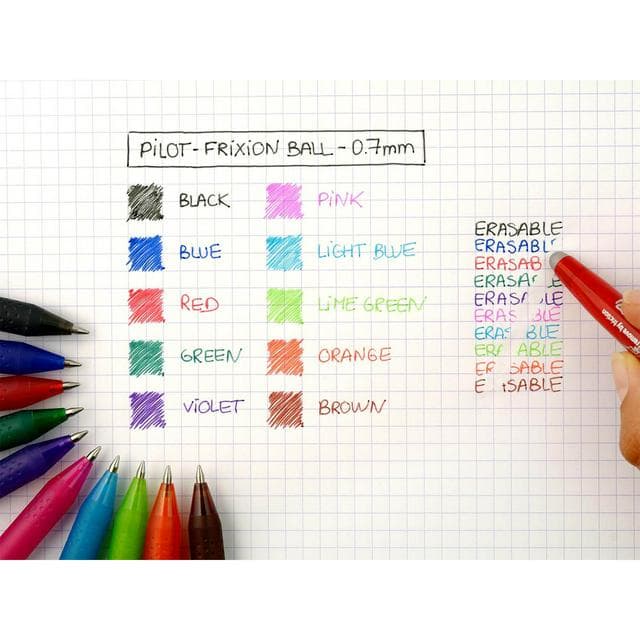 PiLOT - FRiXiON BALL - 0.7mm
BLACK
BLUE
RED
GREEN
ViOLET
PiNK
LiGHT BLUE
LiME GREEN
ORANGE
BROWN
ERASABLE
ERASABL
ERASAB
ERASAB
ERASA LE
ERAS BLE
ERA BLE
ER ABLE
ER SABLE
E SABLE
remove by friction